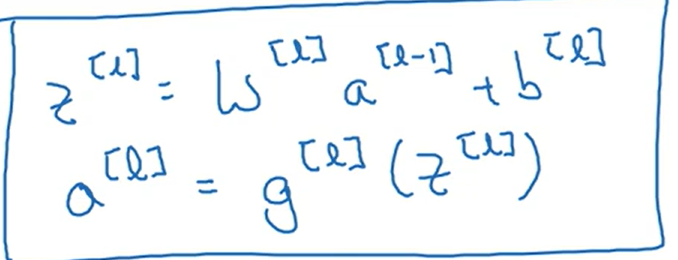 z^[l] = W^[l] a^[l-1] + b^[l]
a^[l] = g^[l] (z^[l])